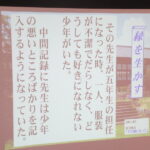 『縁を生かす』
その先生が五年生の担任
になった時、一人、服装
が不潔でだらしなく、ど
うしても好きになれない
少年がいた。
中間記録に先生は少年
の悪いところばかりを記
入するようになっていた。